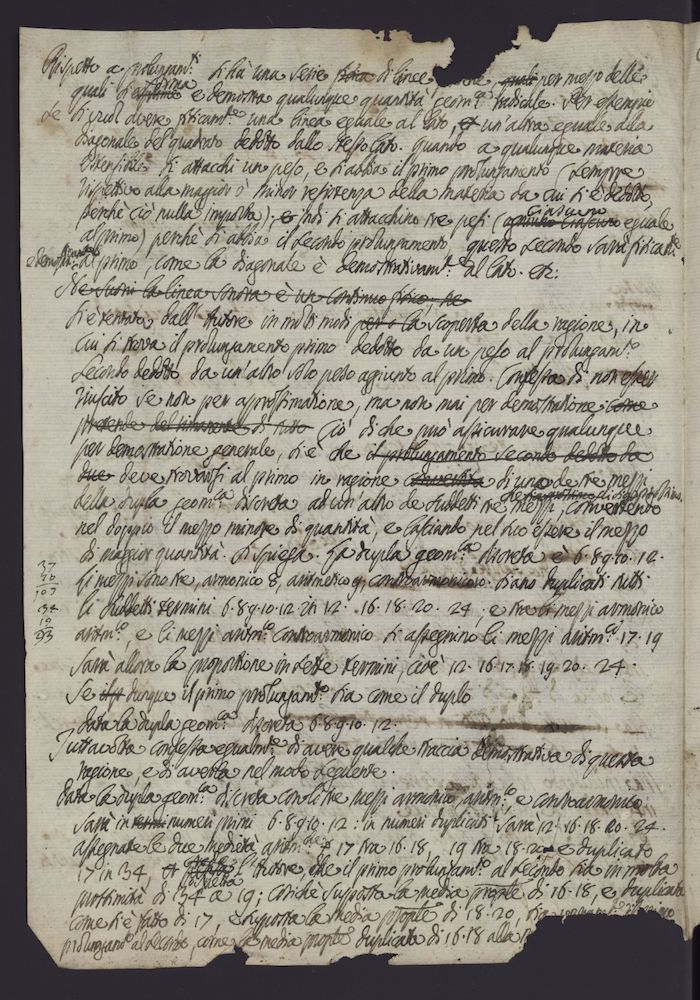 Rispetto a prolungam.ti si ha una serie di linee per mezzo delle
quali si forma e demostra qualunque quantità geom.ca radicale. Per essempio
se si vuol avere fisicam.te una linea eguale al lato, et un'altra eguale alla
diagonale del quadrato dedotto dallo stesso lato. quando a qualunque materia
estensibile si attacchi un peso, e si abbia il primo prolungamento (sempre
rispettivo alla maggior o minor resistenza della materia da cui si è dedotto,
perchè ciò nulla importa); e poi si attacchino tre pesi (ciascuno eguale
al primo) perchè si abbia il secondo prolungamento, questo secondo sarà fisicam.te
al primo, come la diagonale è demostrativam.te al lato. etc:
Se suoni la linea sonora è un continuo fisico, se
Si è tentato dall'Autore in molti modi per la scoperta della ragione, in
cui si trova il prolungamento primo dedotto da un peso al prolungam.to
secondo dedotto da un'altro solo peso agiunto al primo. Confessa di non esser
riuscito se non per approssimazione, ma non mai per demostrazione. Come
pretende del rimanente di tutto Ciò di che può assicurare qualunque
per demostrazione generale, si è che il prolungamento secondo dedotto da
due deve trovarsi al primo in ragione di una de tre mezzi
della dupla geom.ca discreta ad un'altro de suddetti tre mezzi, convertendo
nel doppio il mezzo minore di quantità, e lasciando nel suo essere il mezzo
di maggior quantità. Si spiega. La dupla geom.ca discreta è 6·8·9·10·12·
Li mezzi sono tre, armonico 8, aritmetico 9, contrarmonico 10. Siano duplicati tutti
37
li suddetti termini 6·8·9·10·12 in 12· 16·18·20· 24; e tra li mezzi armonico
34
aritm.co e li mezzi aritm.co controarmonico si assegnino li mezzi aritm.ci 17·19
19
Sarà allora la proporzione in dette termini, cioè 12·16·17·18·19·20·24·
Se dunque il primo prolungam.to sia come il duplo
data la dupla geom.ca discreta 6·8·9·10·12·
Tuttavolta confessa egualm.te di avere qualche traccia demostrativa di questa
ragione, e di averla nel modo seguente.
Data la dupla geom.ca discreta con li tre mezzi armonico, aritm.co e controarmonico
Sarà in numeri primi 6·8·9·10·12: in numeri duplicati sarà 12·16·18·20·24·
assegnate le due medietà aritm.che 17 tra 16·18, 19 tra 18·20 e duplicato
17 in 34, l'Autore, che il primo prolungam.to al secondo sia in molta
prossimità di 34 a 19; così che supposta la media prop.le di 16·18, e duplicata
come si è fatto di 17, e supposta la media prop.le di 18·20, sia
prolungam.to al secondo, come la media prop.le duplicata di 16·18 alla